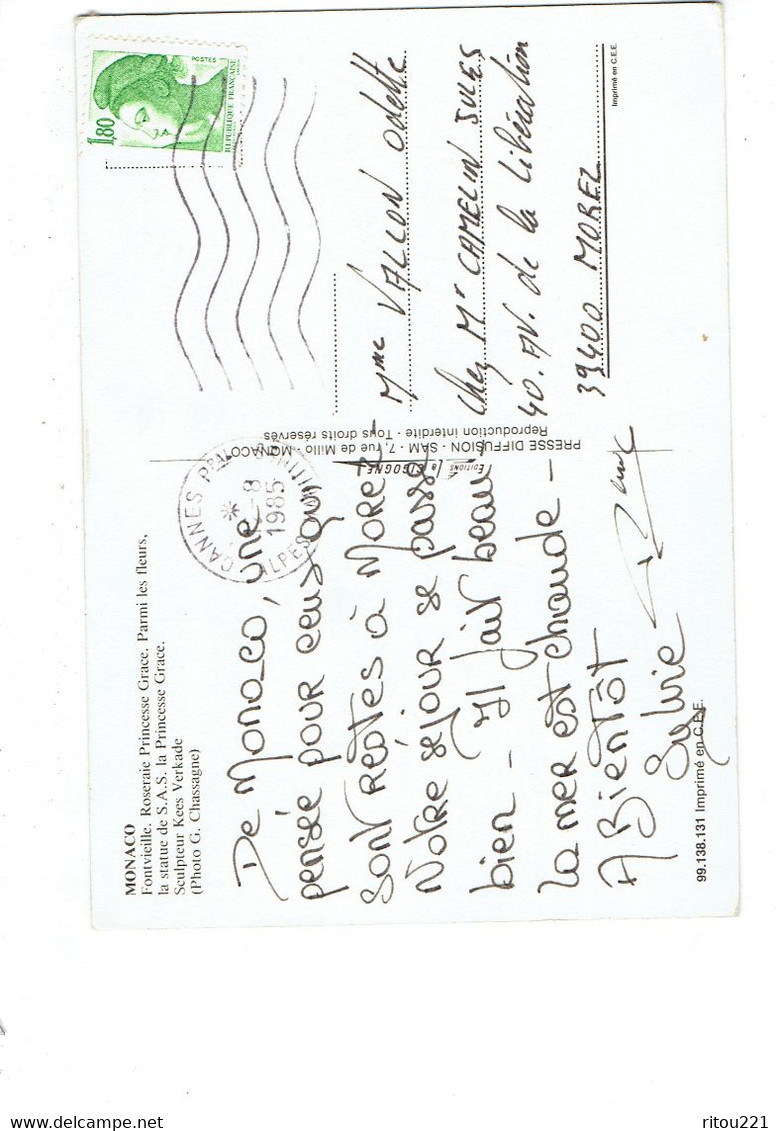 MONACO
Fontvieille. Roseraie Princesse Grace. Parmi les fleurs,
la statue de S.A.S. la Princesse Grace.
Sculpteur Kees Verkade
(Photo G. Chassagne)
De Monaco, une
pensée pour ceux qui
sont restés à Morez -
Notre séjour se passe
bien - Il fait beau
La mer est chaude -
A Bientôt
Sylvie
99.138.131 Imprimé en C.E.E.
CANNES PPAL
* -8
1985
ALPES MARITIMES
PRESSE DIFFUSION - SAM - 7, rue de Millo - MONACO
Reproduction interdite - Tous droits réservés
EDITIONS
la CIGOGNE
POSTES
1,80
REPUBLIQUE FRANÇAISE
Mme VALLON Odette
chez Mr CAMELIN JULES
40. AV. de la Libération
39400 MOREZ
Imprimé en C.E.E.
ritou221